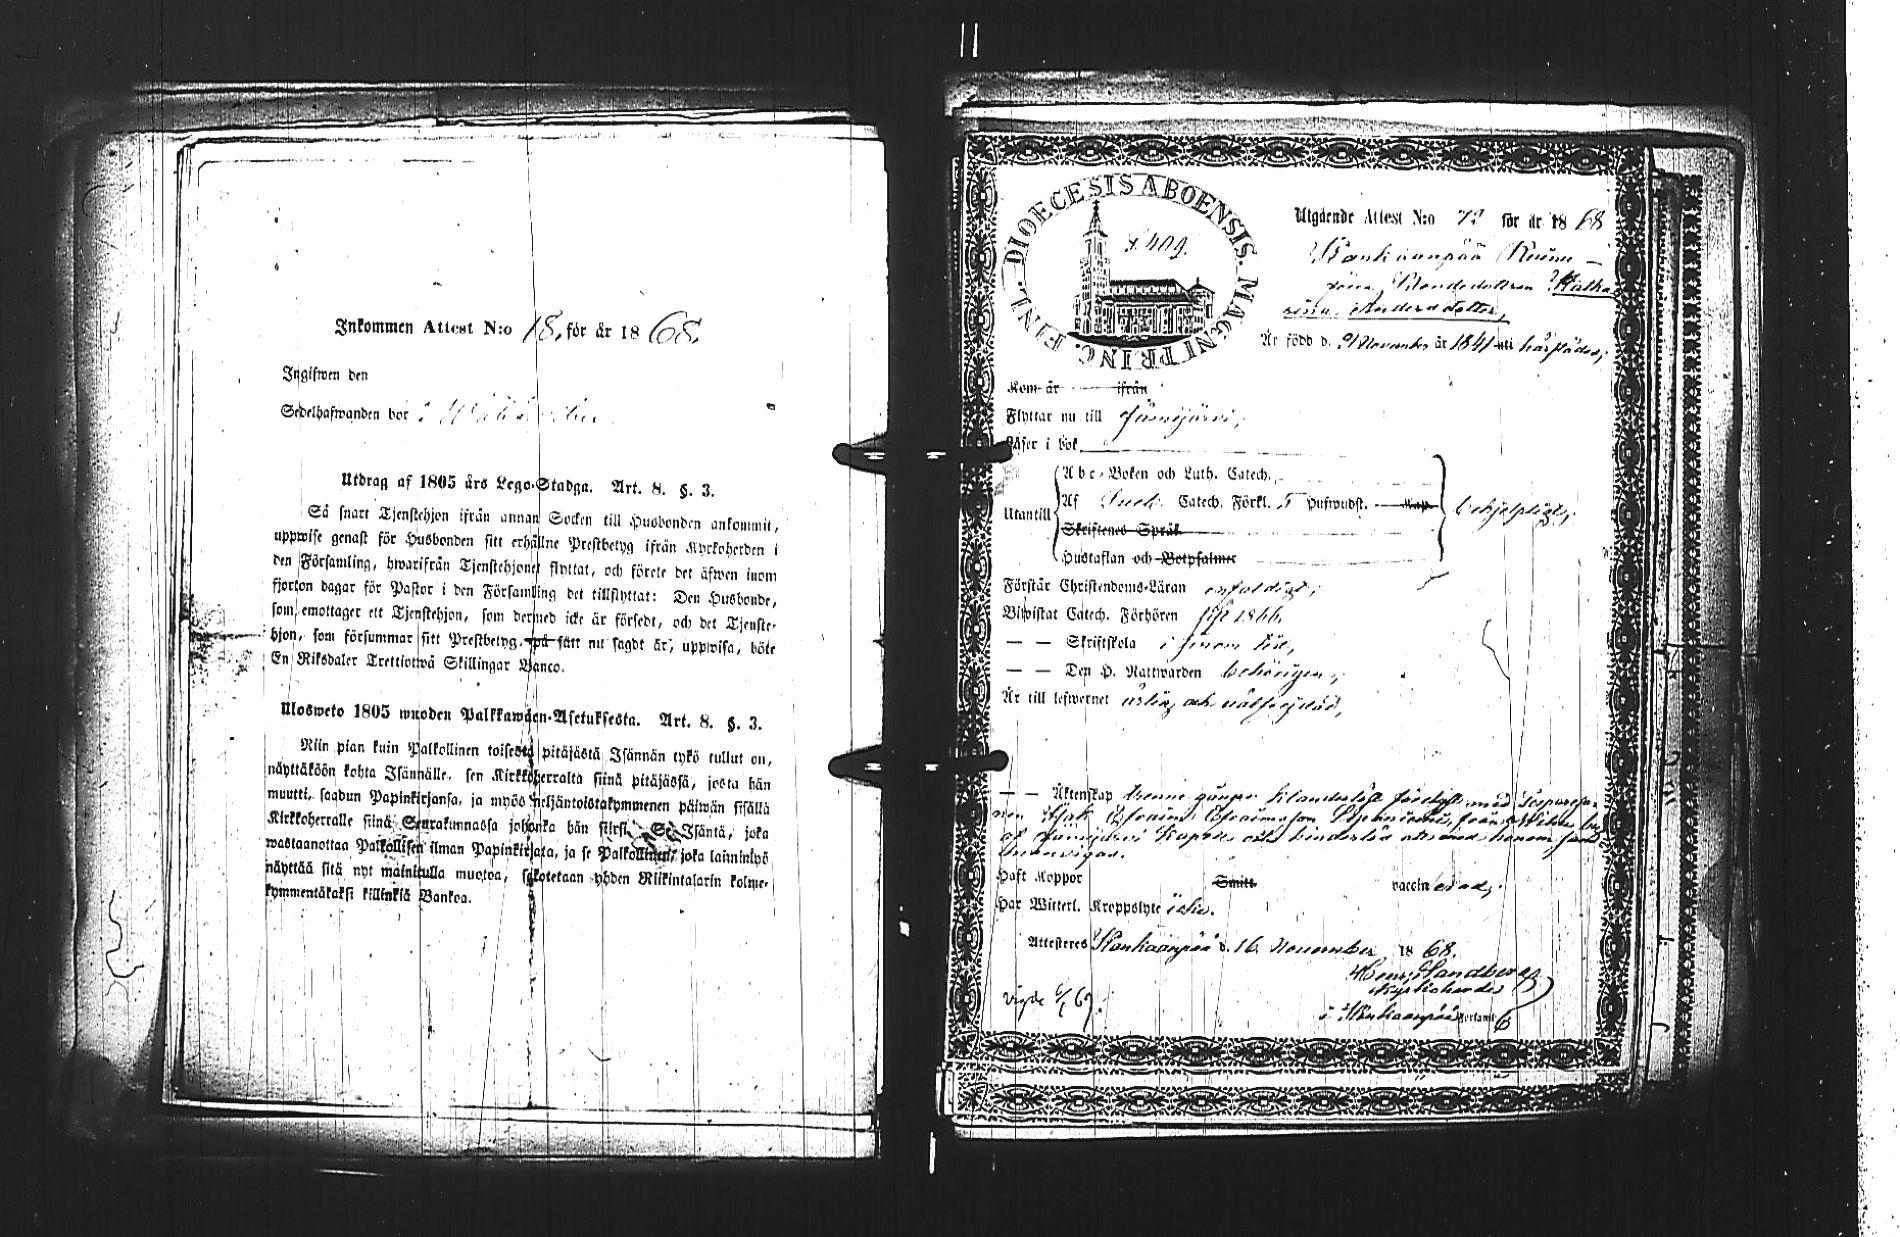 Inkommen Attest N:o 18, för år 1868.
Ingifwen den
Sedelhafwanden bor i
Utdrag af 1805 års Lego-Stadga. Art. 8. §. 3.
Så snart Tjenstehjon ifrån annan Socken till Husbonden ankommit,
uppwise genast för Husbonden sitt erhållne Prestbetyg ifrån Kyrkoherden i
den Församling, hwarifrån Tjenstehjonet flyttat, och förete det äfwen inom
fjorton dagar för Pastor i den Församling det tillflyttat: Den Husbonde,
som emottager ett Tjenstehjon, som dermed icke är försedt, och det Tjenste-
hjon, som försummar sitt Prestbetyg, på sätt nu sagdt är, uppwisa, böte
En Riksdaler Trettiotwå Skillingar Banco.
Ulosweto 1805 wuoden Palkkawäen-Asetuksesta. Art. 8. §. 3.
Niin pian kuin Palkollinen toisesta pitäjästä Isännän tykö tullut on,
näyttäköön kohta Isännälle, sen Kirkkoherralta siinä pitäjässä, josta hän
muutti, saadun Papinkirjansa, ja myös neljäntoistakymmenen päiwän sisällä
Kirkkoherralle siinä Seurakunnassa johonka hän siirsi. Se Isäntä, joka
wastaanottaa Palkollisen ilman Papinkirjata, ja se Palkollinen, joka laiminlyö
näyttää sitä nyt mainitulla muotoa, sakotetaan yhden Riikintalarin kolme-
kymmentäkaksi killinkiä Bankoa.
DIOECESIS ABOENSIS. MAGNI PRINC. FINL.
S. 409.
Utgående Attest N:o 72 för år 1868
Kankaanpää
Bondedottren Katha
rina Andersdotter,
Är född d. 9 November år 1841 uti härstädes,
Kom år ifrån
Flyttar nu till Jämijärvi,
Läser i bok
Utantill
Abc-Boken och Luth. Catech.
Af Catech. Förkl. 5 Hufwudst. Kap.
Skriftenes Språk
Hustaflan och Botpsalmer
behjelpligt,
Förstår Christendoms-Läran enfaldigt,
Biwistat Catech. Förhören 1866,
— — Skriftskola i sinom tid,
— — Den H. Nattwarden behörigen,
Är till lefwernet ärlig och välfrejdad,
— — Äktenskap trenne gånger klanderlöst med
af Jämijärvi Kapell och hinderlös
Haft Koppor Smitt. vaccinerad,
Har Witterl. Kroppslyte icke.
Attesteres Kankaanpää d. 16 November 1868.
Sandberg
Kyrkoherde
i Kankaanpää Förraml.
Vigde